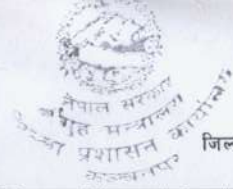 नेपाल सरकार
गृह मन्त्रालय
जिल्ला प्रशासन कार्यालय
कञ्चनपुर
जिल